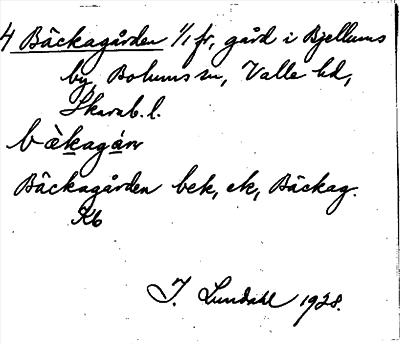 4 Bäckagården 1/1 fr, gård i Bjellums
by, Bolums sn, Valle hd,
Skarab. l.
bàkagán
Bäckagården bek, ek, Bäckag.
Kb
I. Lundahl 1928.